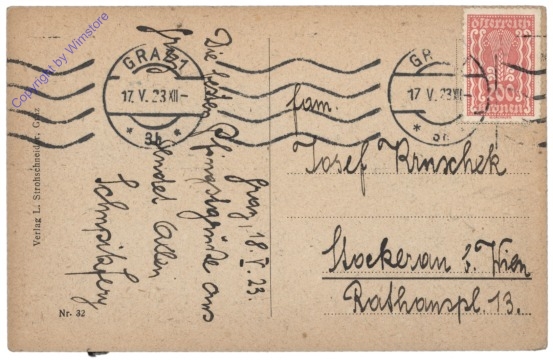 Copyright by Wimstore
GRAZ 1
17. V. 23 XII-
* 3b *
GR
17 V. 23 XII
österreich
200
Kronen
Graz, 18. V. 23.
Die besten Pfingstgrüße aus
Graz
sendet Allen
Fam.
Josef
Stockerau b/Wien
Rathauspl. 13.
Verlag L. Strohschneider, Graz
Nr. 32